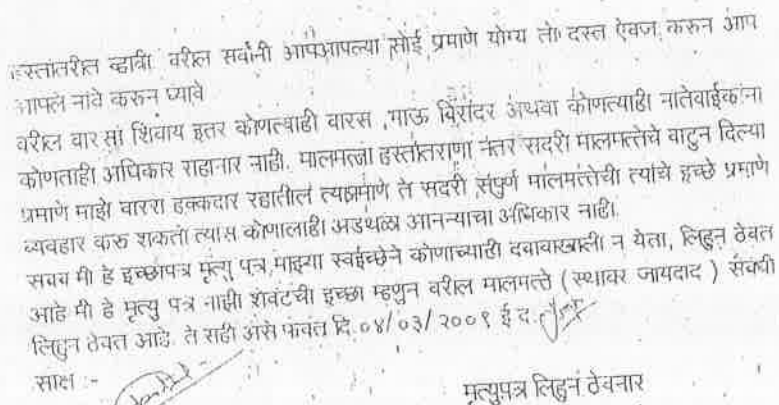 हस्तांतरीत व्हावी. वरील सर्वांनी आपआपल्या सोई प्रमाणे योग्य तो दस्त ऐवज करुन आप
आपले नांवे करुन घ्यावे
वरील वारसां शिवाय इतर कोणत्याही वारस ,भाऊ बिरांदर अथवा कोणत्याही नातेवाईकांना
कोणताही अधिकार राहानार नाही. मालमत्ता हस्तांतराणा नंतर सदरी मालमत्तेचे वाटुन दिल्या
प्रमाणे माझे वारस हक्कदार रहातील त्याप्रमाणे ते सदरी संपुर्ण मालमत्तेची त्यांचे इच्छे प्रमाणे
व्यवहार करु शकतो त्यास कोणालाही अडथळा आनन्याचा अधिकार नाही.
सबब मी हे इच्छापत्र मृत्यु पत्र,माझ्या स्वईच्छेने कोणाच्याही दबावाखाली न येता, लिहुन ठेवत
आहे मी हे मृत्यु पत्र माझी शेवटची इच्छा म्हणुन वरील मालमत्ते ( स्थावर जायदाद ) संबधी
लिहुन ठेवत आहे. ते सही असे फक्त दि.०४/०३/२००९ ई द.
साक्ष :-
मृत्युपत्र लिहुन ठेवनार